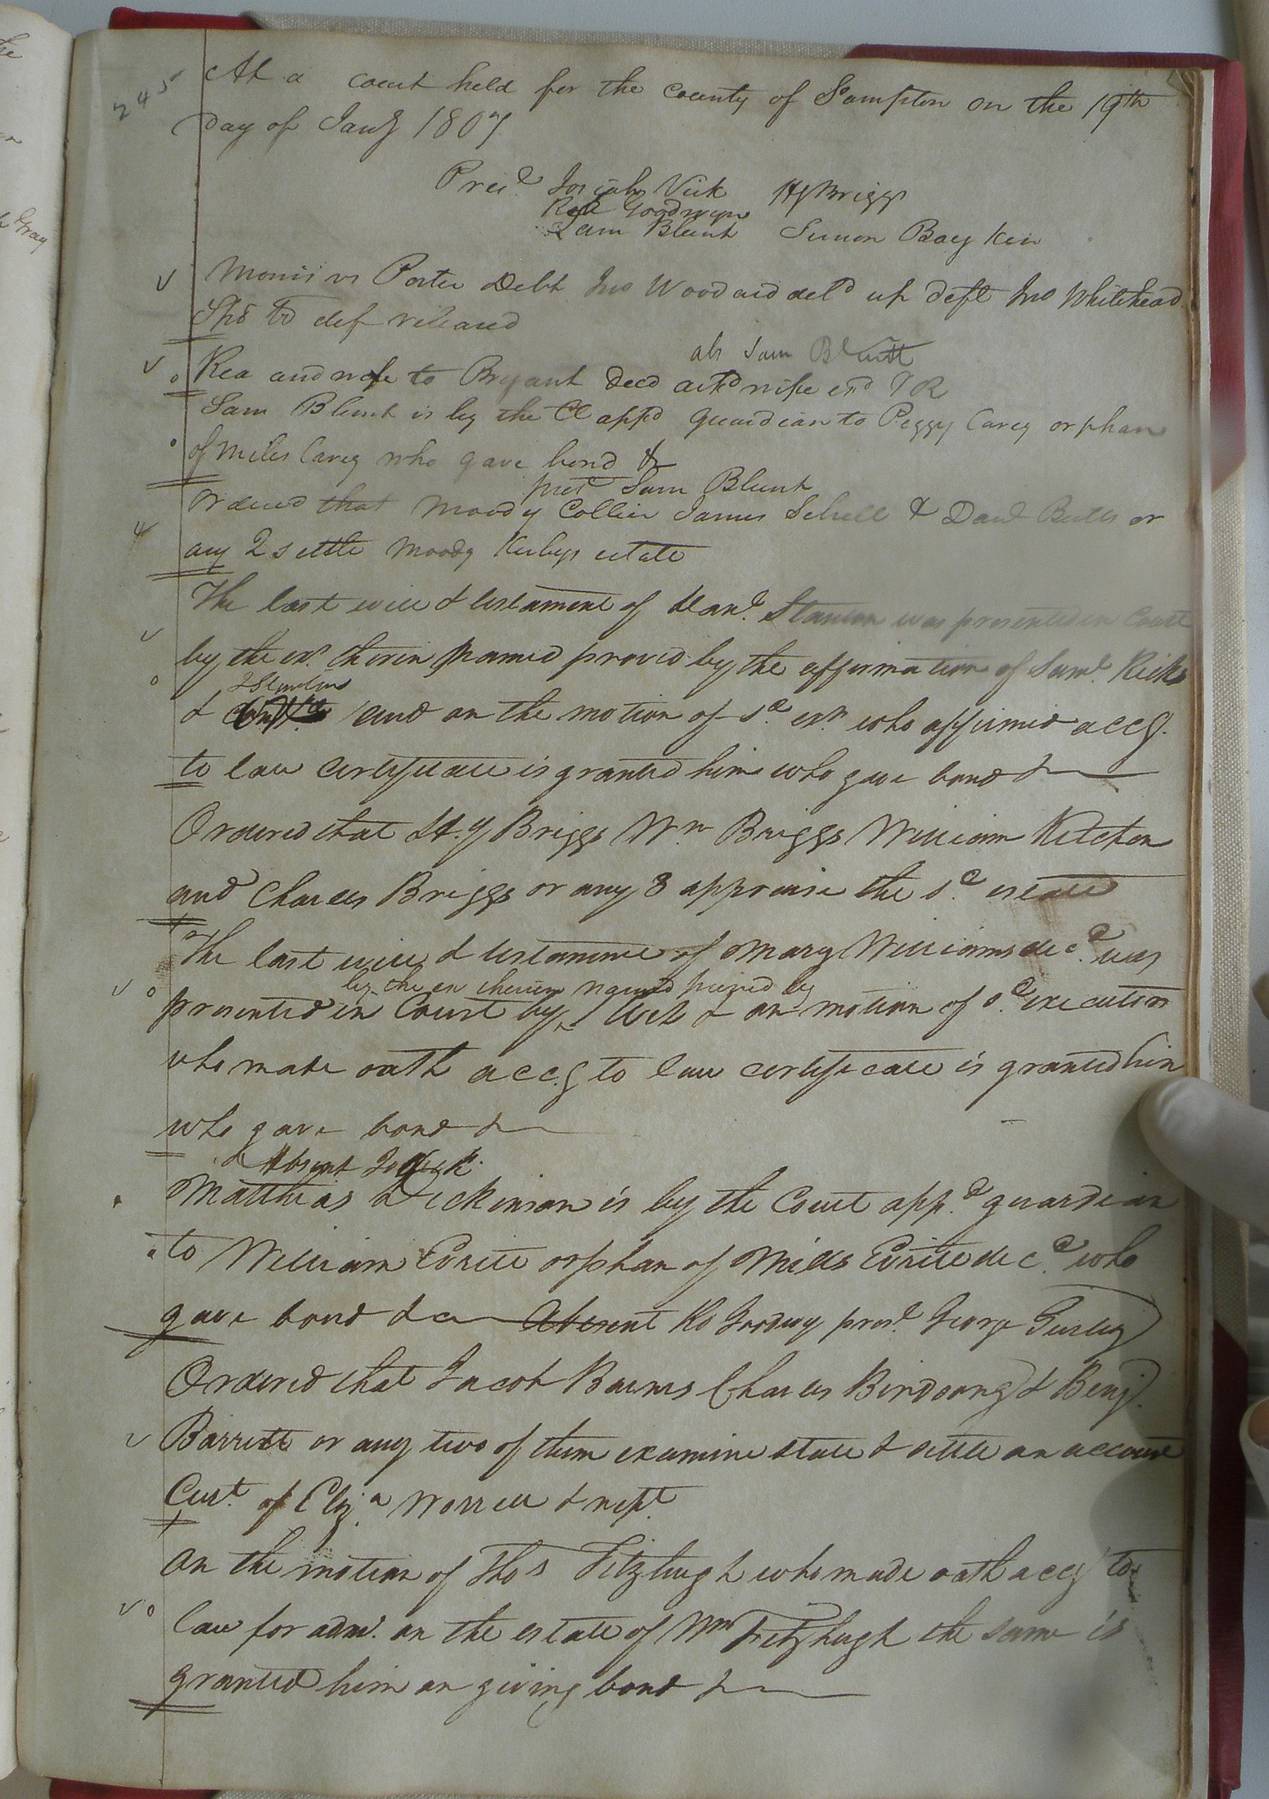 245
At a court held for the county of Sampton on the 19th
Day of Jany 1807
Presd. Josiah Vick HyBriggs
Ro Goodwyn
Sam Blunt Simon Boykin
Morris vs Porter Debt Jno Woodard deld up deft Jno Whitehead
Spb to def released
abs Sam Blunt
Rea and wife to Bryant Deed ackd wife exd & R
Sam Blunt is by the Ct appd guardian to Peggy Carey orphan
of Miles Carey who gave bond &
prest Sam Blunt
Ordered that Moody Collier James & Danl Butts or
any 2 settle Moody Kirbys estate
The last will & testament of Stanton was presented in Court
by the exr therein named proved by the affirmation of Saml. Ricks
& and on the motion of sd. exr. who affirmed accg.
to law certificate is granted him who gave bond &
Ordered that H.y Briggs Wm. Briggs William Kitchen
and Charles Briggs or any 3 appraise the sd. estate
The last will & testament of Mary Williams decd. was
by the ex therein named proved by
presented in Court by & on motion of sd. executor
who made oath accg to law certificate is granted him
who gave bond &
Absent Jo Vick
Matthias Dickinson is by the Court appd. guardian
to William orphan of Mills decd. who
gave bond &c Absent Ro Goodwy prest. George Gurley
Ordered that Jacob Barnes Charles Birdsong & Benj.
Barrett or any two of them examine state & settle an account
Curt. of Eliza. Worrell &
On the motion of Thos Fitzhugh who made oath accg to
law for adm. on the estate of Wm Fitzhugh the same is
granted him on giving bond &